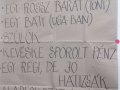 - EGY ROSSZ BARÁT (DNY)
- EGY BÁTY (UGA BAN)
- SZÜLŐK
- KEVÉSKE SPÓROLT PÉNZ
- EGY RÉGI, DE JÓ
HÁTIZSÁK